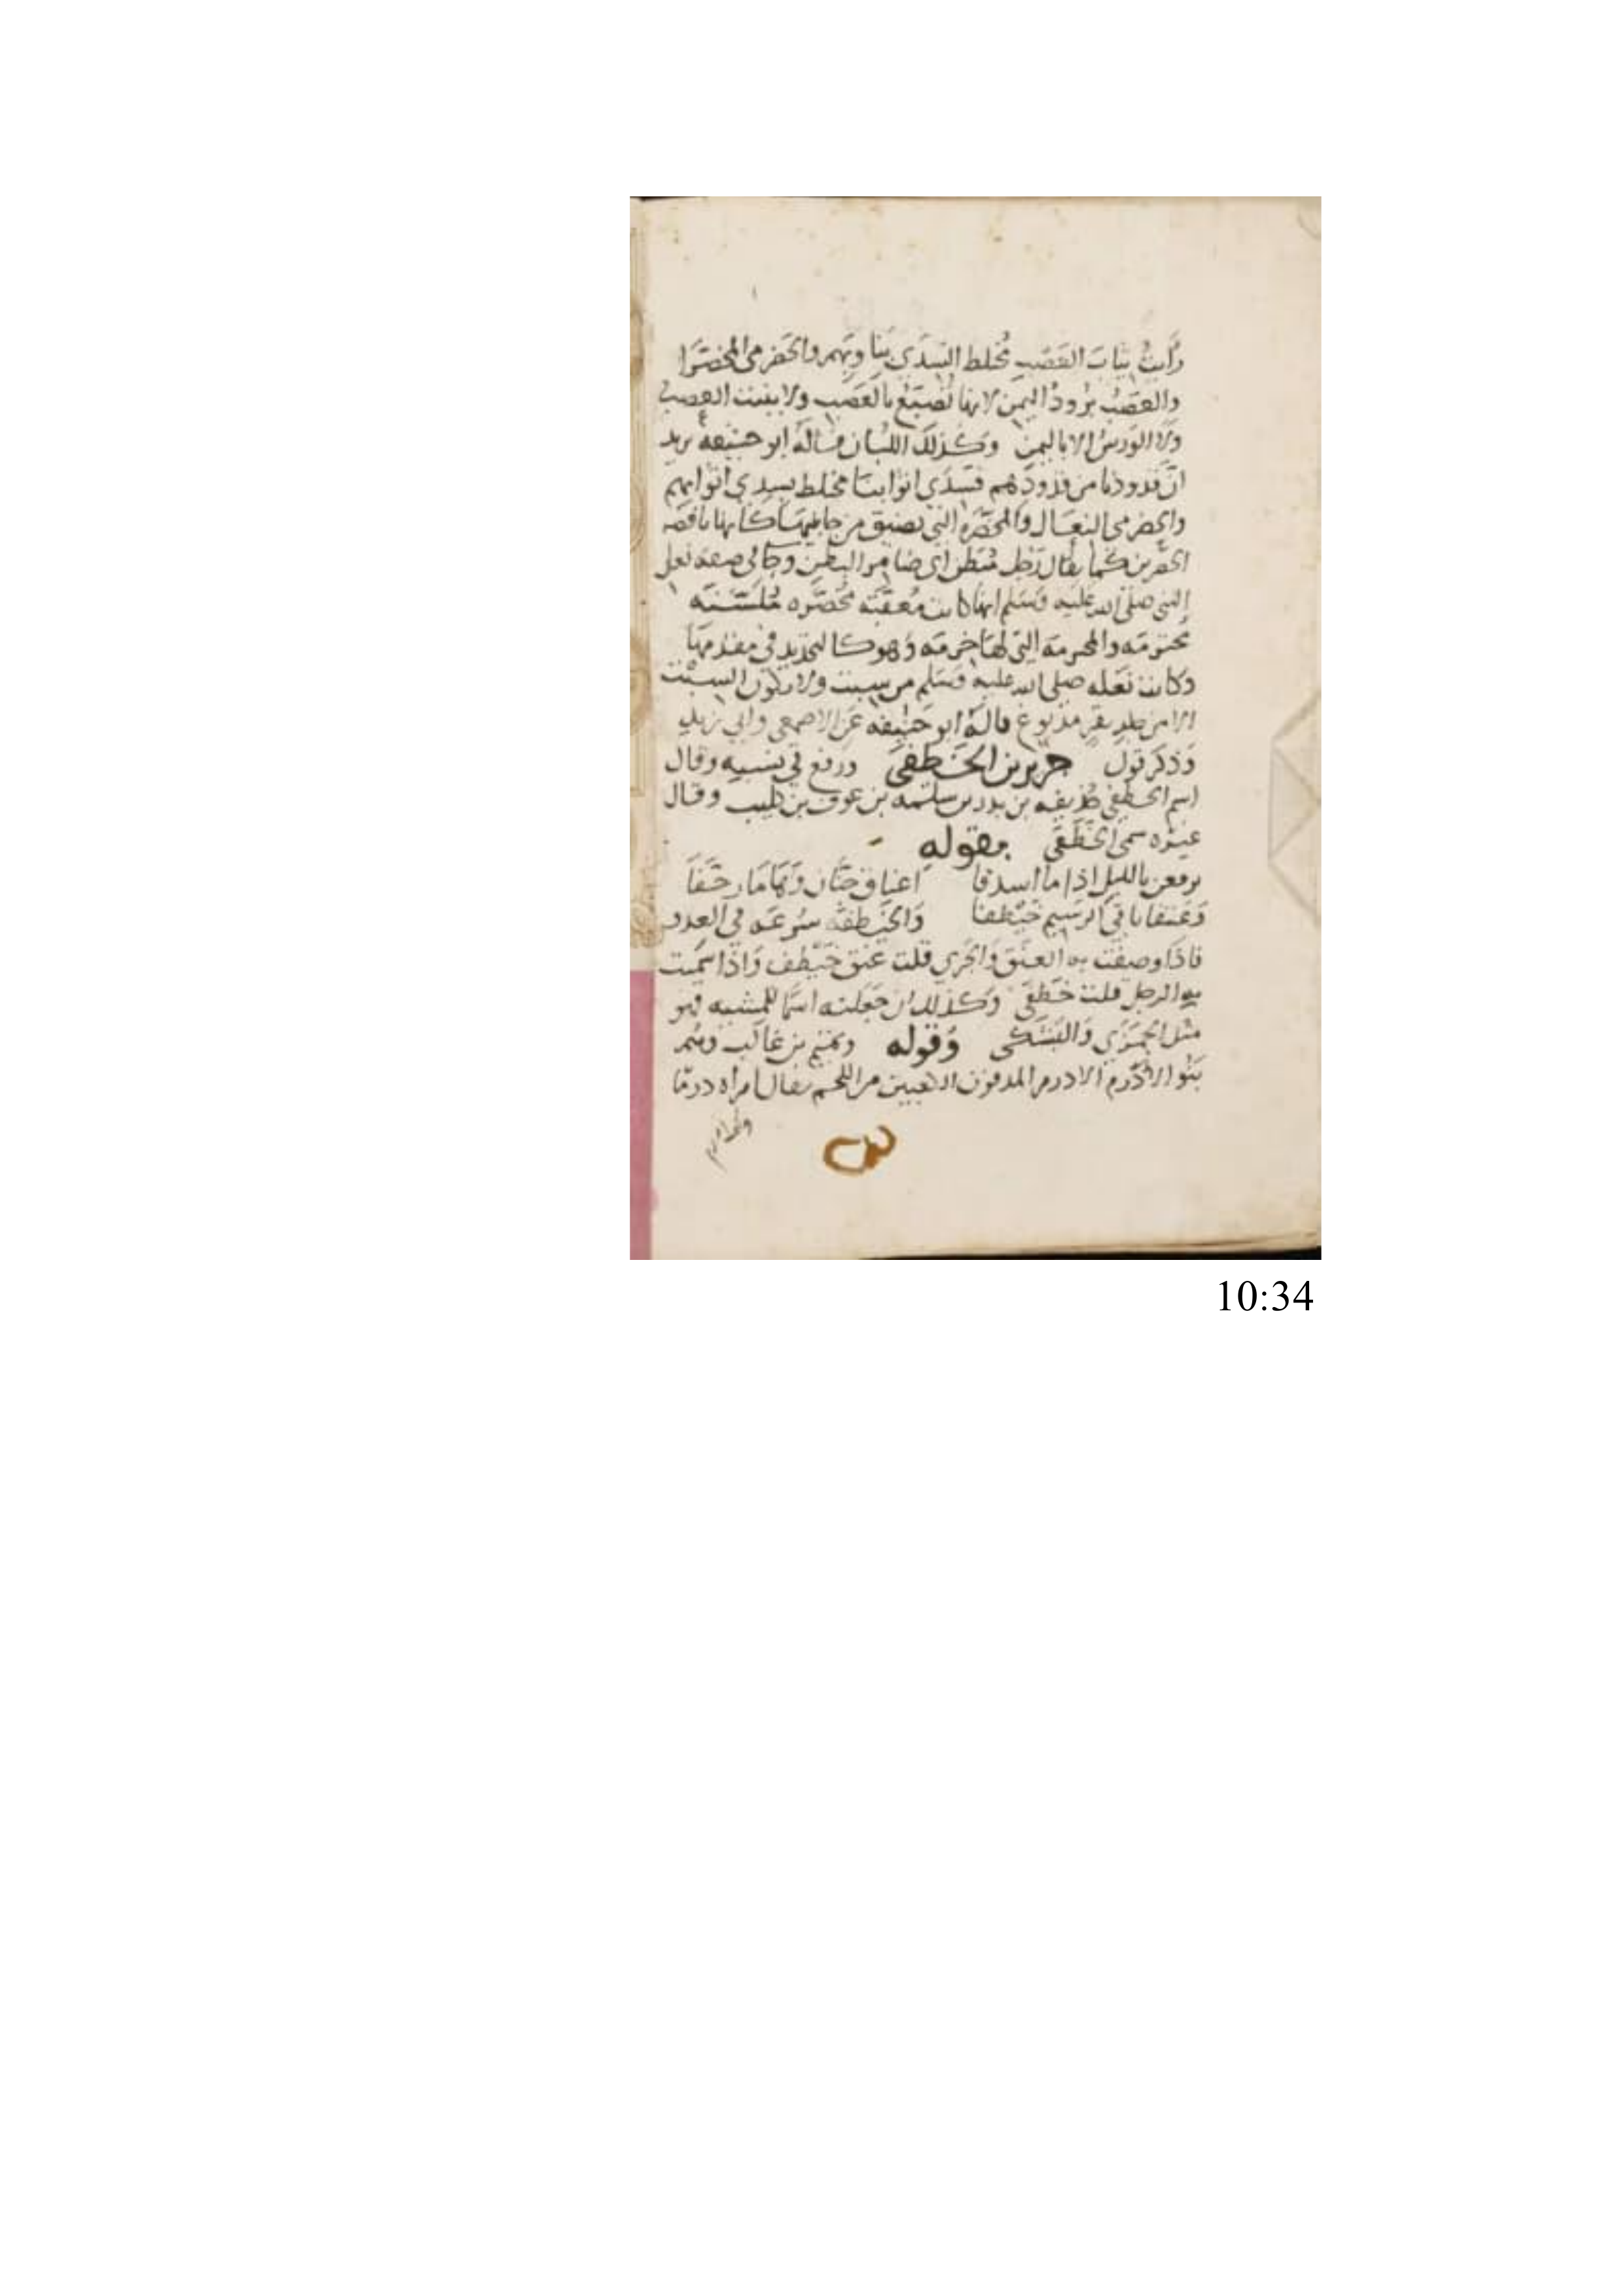 رأيتُ ثيابَ العَصْبِ مُخلط السَّدَى بنا وبهم والحضرمى المخصّرا
والعَصْبُ برُودُ اليمن لانها تُصبَغ بالعَصْبِ ولا ينبت العصبُ
ولا الوَرسُ الا باليمن وكذلك اللبان قاله ابو حنيفة يريد
انّ قدودنا من قدودهم فسَدَى اثوابنا مختلط بسدى اثوابهم
والحضرمى النعال والمخصّرة التى تضيق من جانبيها كانها ناقصة
الخصرين كما يقال رَجل مُبَطّن اى ضامر البطن وجا فى صفة نعل
النبى صلى الله عليه وسلم انها كانت مُعَقّبَة مخصّره مُلسّنَنه
مخثرمه والمخرمه التى لها خرمه وَهو كالتحديد فى مقدمها
وكانت نَعله صلى الله عليه وسَلم من سبت ولا يكون السبْت
الا من جلد بقر مدبوغ قالهُ ابو حَنيفه عَن الاصمعى وابى زيد
وَذكر قول جرير بن الخَطفى ورفع فى نسبه وقال
اسم الخطفى حُذيفه بن بدر بن سلمه بن عوف بن كليب وقال
غيره سمى الخَطَفَى بقوله
يرفعن بالليل اذا ما اسدفا اعناق جنَّان وَهَامًا رجَّفَا
وَعَنقًا باقى الرسيم خَيْطفا وَالخَيطفَه سُرعَه فى العدو
فاذا وصفت به العنَق وَالجرى قلت عَنق خَيْطف وَاذا سمّيت
به الرجل قلت خَطفَى وكذلك ان جَعَلته اسمًا للمشيه فهو
مثل الجمَزَى وَالبَشَكى وَقوله وتميم بن غالب وهُم
بَنُو الادرَم الادرم المدفون الكعبين من اللحم يقال امراه درمَا